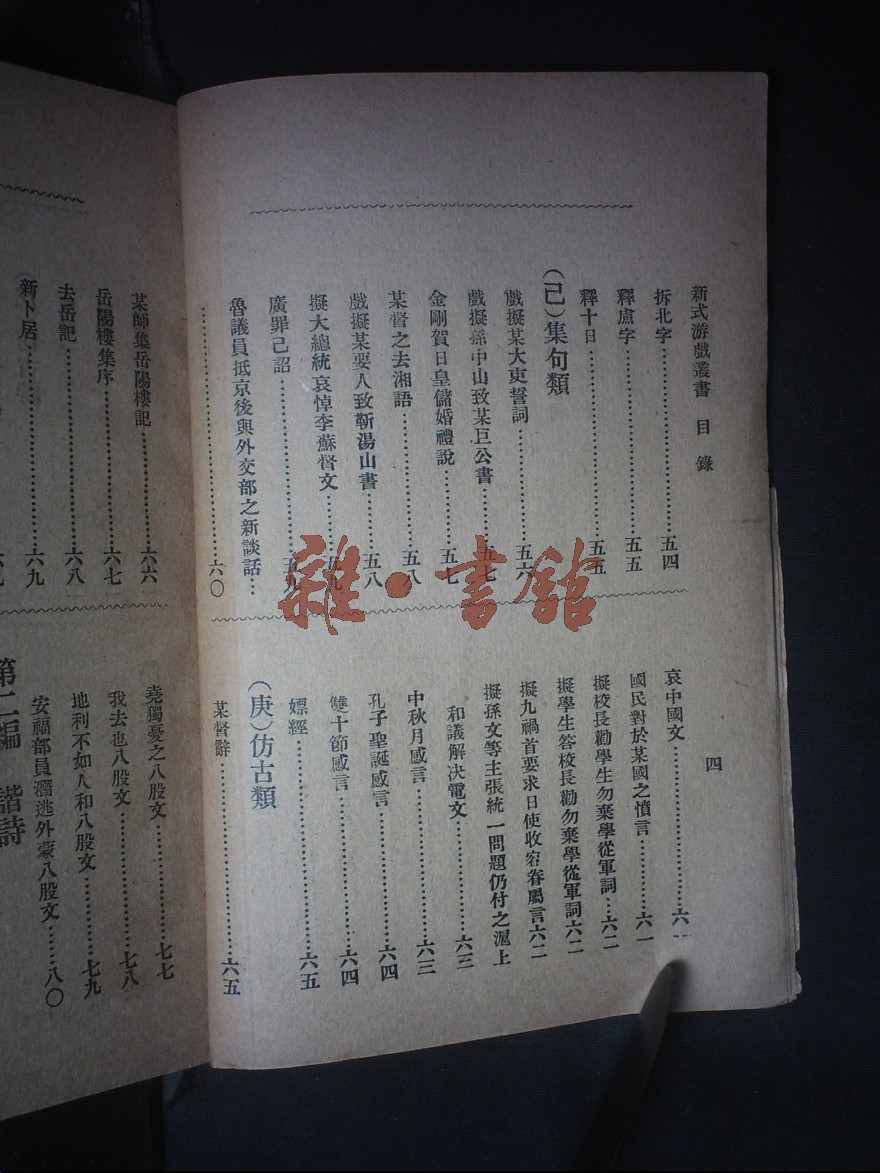 新式游戲叢書 目錄
四
拆北字……五四
釋鹵字……五五
釋十日……五五
(己)集句類
戲擬某大吏誓詞……五六
戲擬孫中山致某巨公書……五七
金剛賀日皇儲婚禮說……五七
某督之去湘語……五八
戲擬某要人致靳湯山書……五八
擬大總統哀悼李蘇督文……五九
廣罪己詔……五九
魯議員抵京後與外交部之新談話…
……六〇
哀中國文……六一
國民對於某國之憤言……六一
擬校長勸學生勿棄學從軍詞…六二
擬學生答校長勸勿棄學從軍詞六二
擬九禍首要求日使收容眷屬言六二
擬孫文等主張統一問題仍付之滬上
和議解決電文……六三
中秋月感言……六三
孔子聖誕感言……六四
雙十節感言……六四
嫖經……六五
(庚)仿古類
某督辭……六五
某師集岳陽樓記……六六
岳陽樓集序……六七
去岳記……六八
新卜居……六九
堯獨憂之八股文……七七
我去也八股文……七八
地利不如人和八股文……七九
安福部員潛逃外蒙八股文……八〇
第二編 諧詩
雜·書館